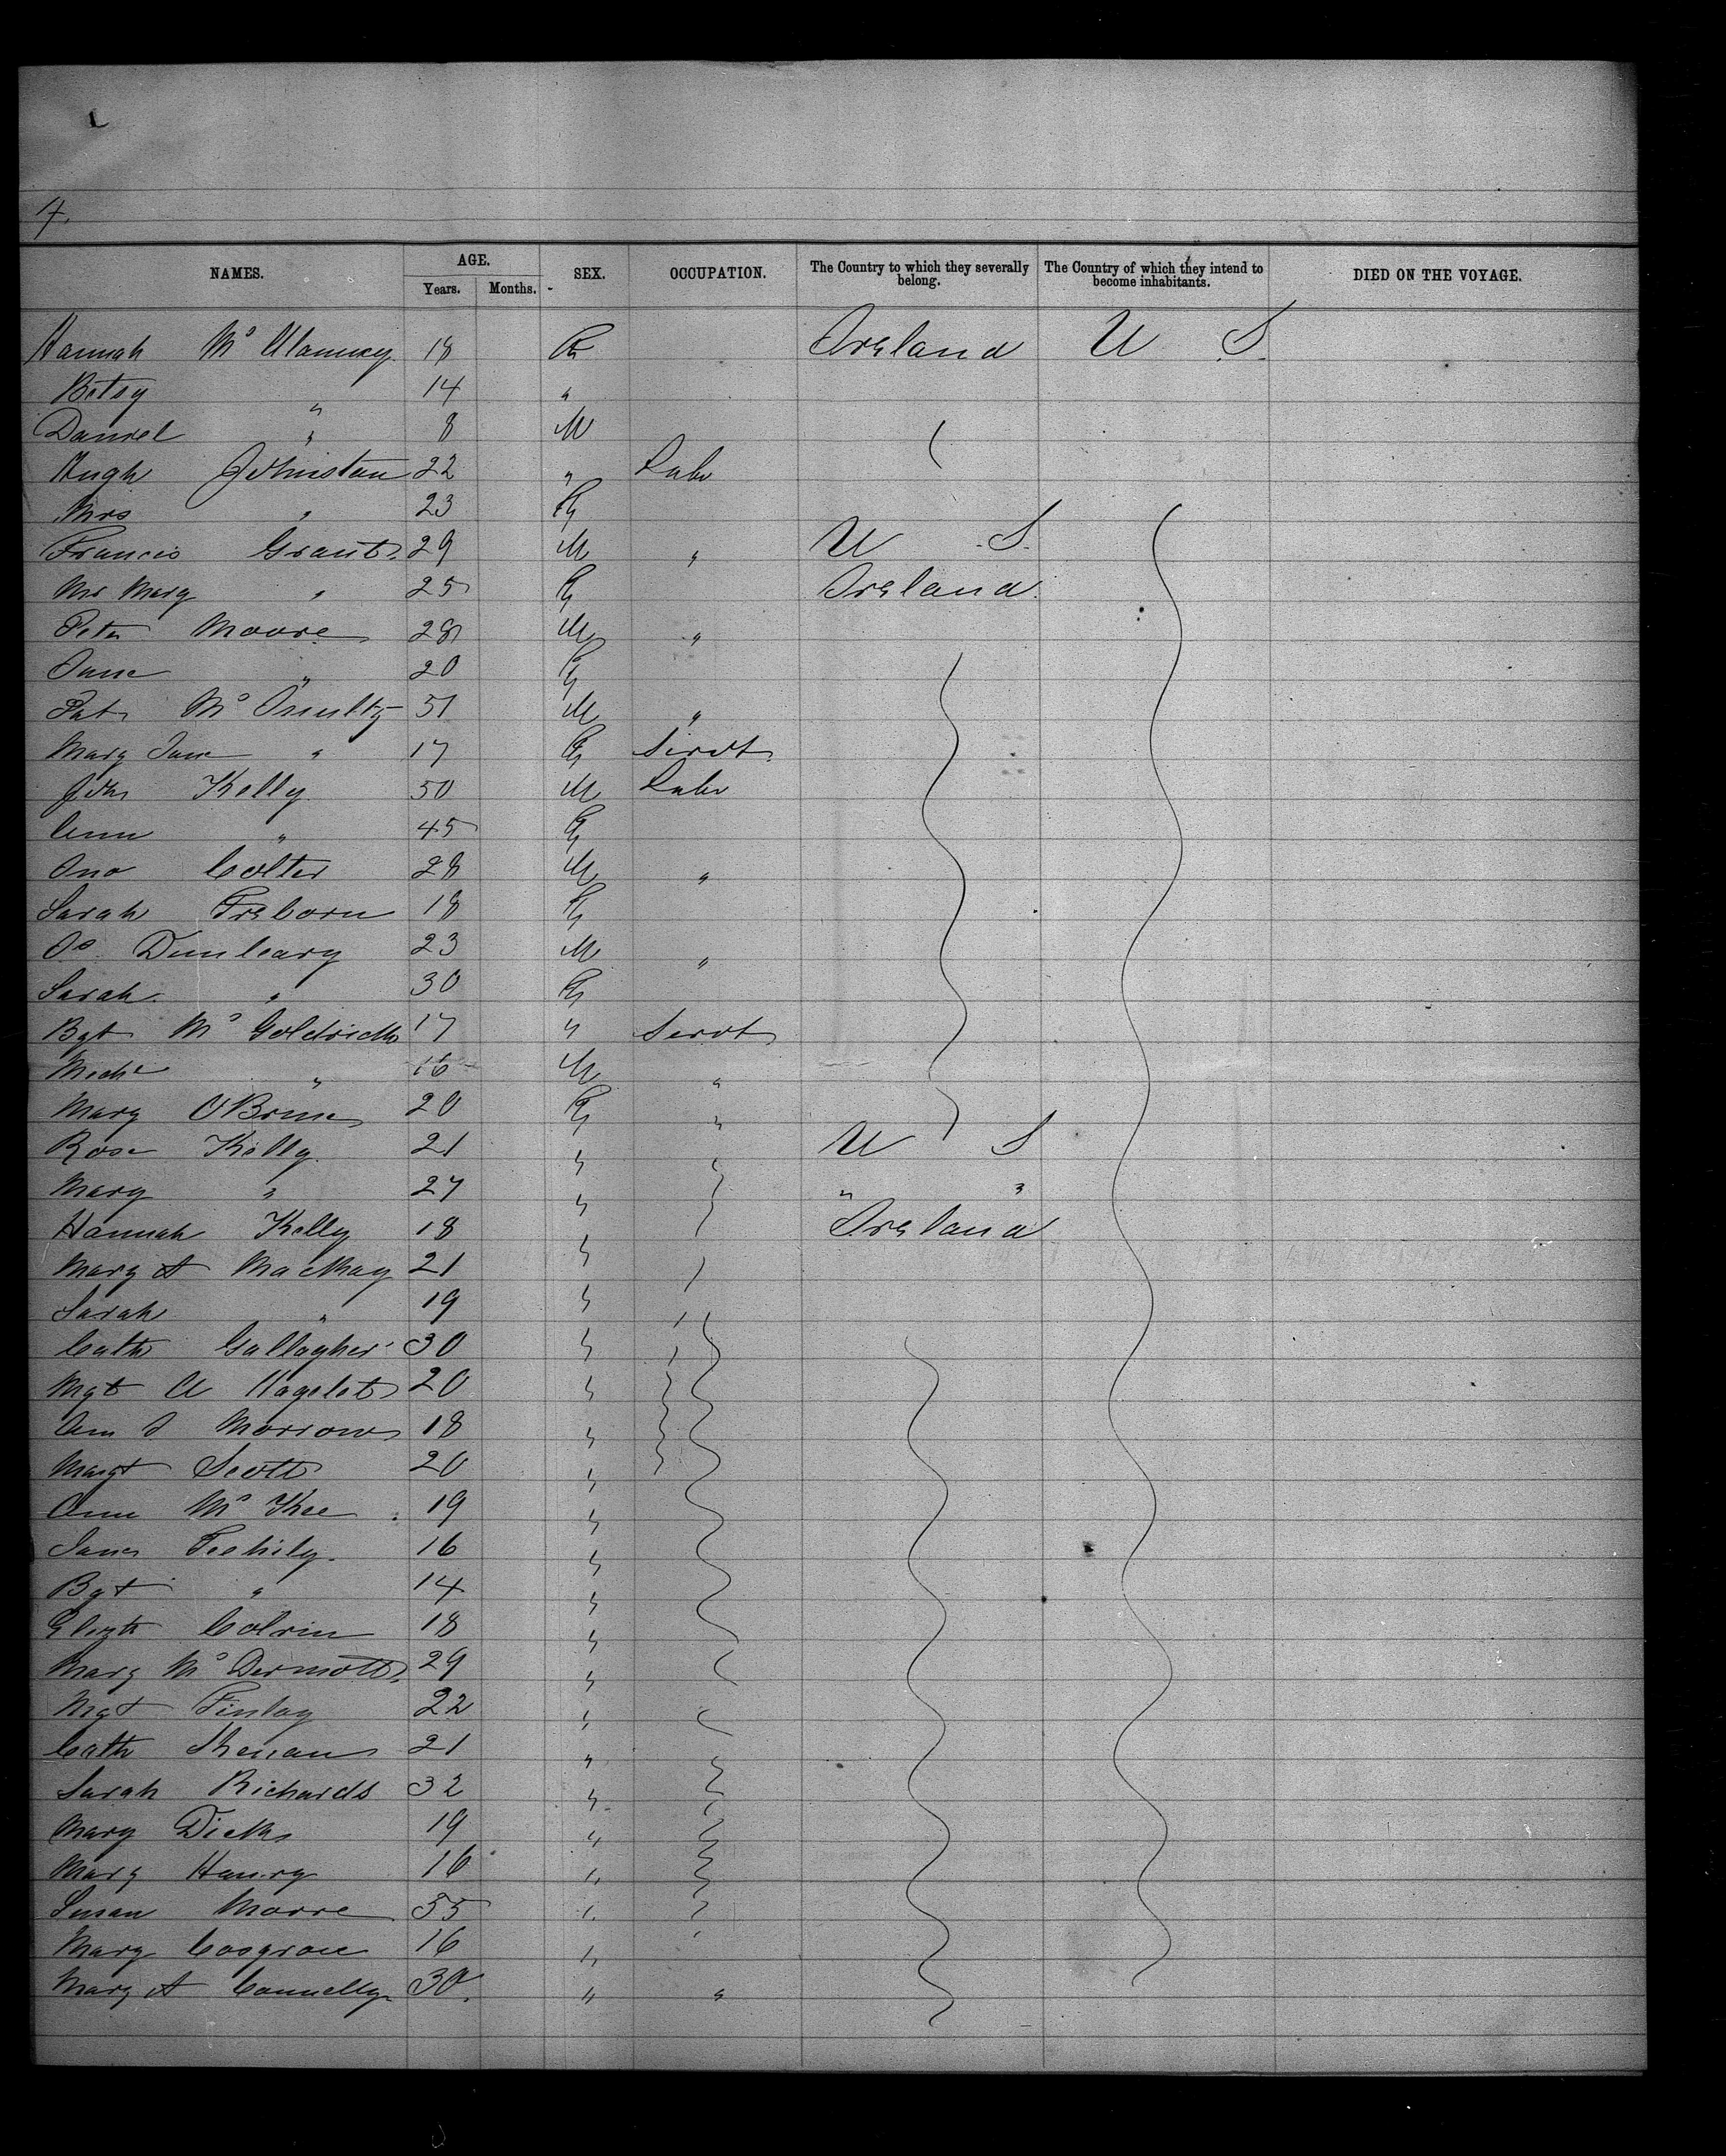 4.
NAMES. AGE. SEX. OCCUPATION. The Country to which they severally belong. The Country of which they intend to become inhabitants. DIED ON THE VOYAGE.
Years. Months.
Hannah 18 Ireland U S.
Betsy " 14 "
Daniel " 8 M
Hugh Johnston 22 " Labr
Mrs " 23
Francis Grant. 29 M " U S.
Mrs Mary " 25 Ireland
Peter Moore 28 M "
Jane " 20
Pat McAnulty 51 M "
Mary Jane " 17 Servt
John Kelly 50 M Labr
Ann " 45
Jno Colter 28 M "
Sarah Freborn 18
Js. Dunleavy 23 M "
Sarah " 30
Bgt McGoldrick 17 " Servt
Michl " 16 M "
Mary O'Brine 20 "
Rose Kelly. 21 " " U S
Mary " 27 " " " "
Hannah Kelly 18 " Ireland
Mary A MacKay 21 "
Sarah " 19 " "
Cath Gallagher 30 "
Mgt A 20 "
Ann J Morrow 18 "
Margt Scott 20 "
Ann McKee 19 "
James Feehily. 16 "
Bgt " 14 "
Elizth Colvin 18 "
Mary McDermott. 29 "
Mgt Finlay 22 "
Cath Kenan 21 "
Sarah Richards 32 "
Mary Dick 19 "
Mary Hanry 16 "
Susan Moore 55 "
Mary Cosgrove 16 "
Mary A Connelly 30. " "